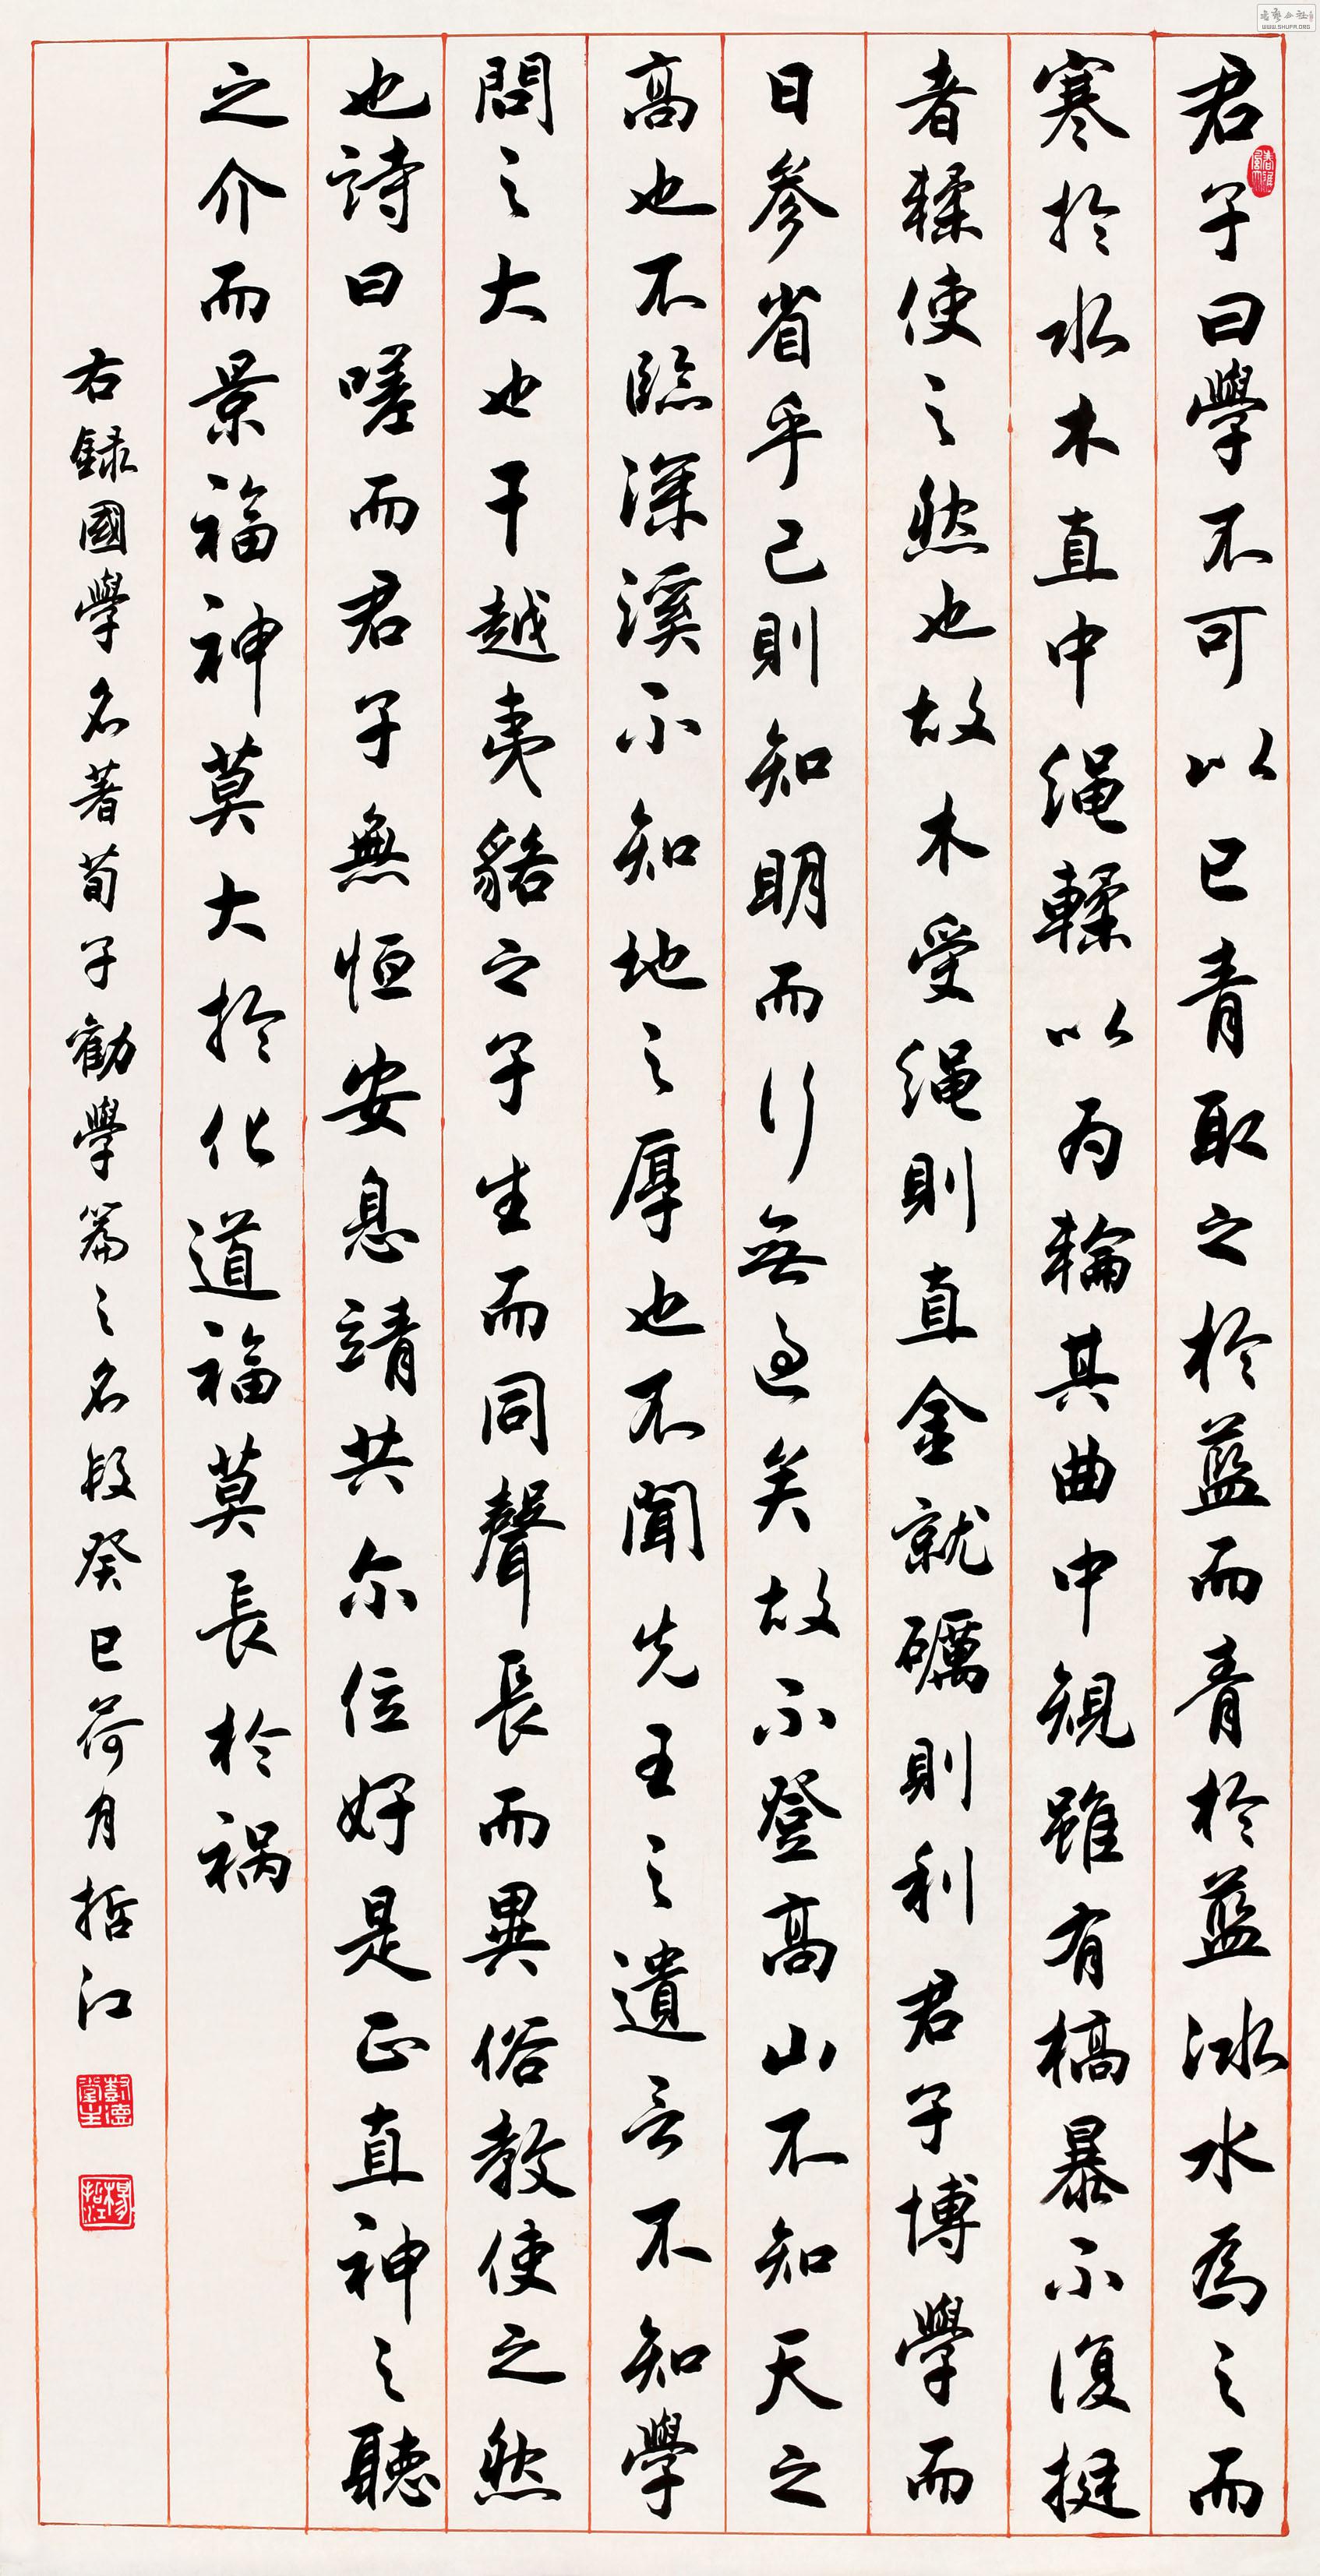 君子曰學不可以已青取之於藍而青於藍冰水為之而
寒於水木直中绳輮以为輪其曲中規雖有槁暴不復挺
者輮使之然也故木受绳則直金就礪則利君子博學而
日参省乎己則知明而行無過矣故不登高山不知天之
高也不臨深溪不知地之厚也不聞先王之遺言不知學
問之大也干越夷貉之子生而同聲長而異俗教使之然
也詩曰嗟而君子無恒安息靖共尔位好是正直神之聽
之介而景福神莫大於化道福莫長於祸
右録國學名著荀子勸學篇之名段癸巳荷月哲江
楊哲江
WWW.SHUFA.ORG